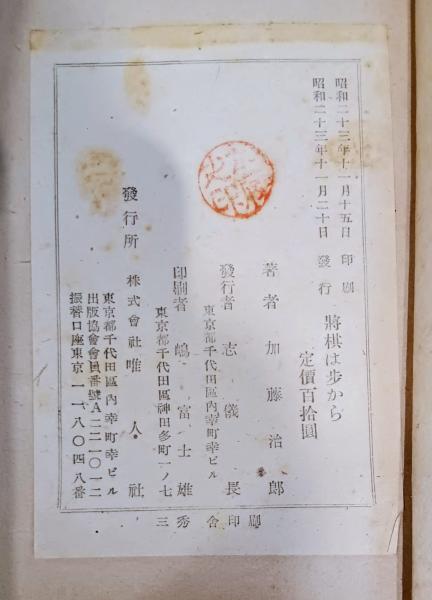 昭和二十三年十一月十五日 印刷
昭和二十三年十一月二十日 發行
將棋は步から
定價百拾圓
著者 加藤治郎
發行者 志儀 長
東京都千代田區內幸町幸ビル
印刷者 嶋 富士雄
東京都千代田區神田多町一ノ七
發行所 株式會社 唯人社
東京都千代田區內幸町幸ビル
出版協會會員番號A二二一〇一二
振替口座東京一一八〇四八番
三秀舍印刷